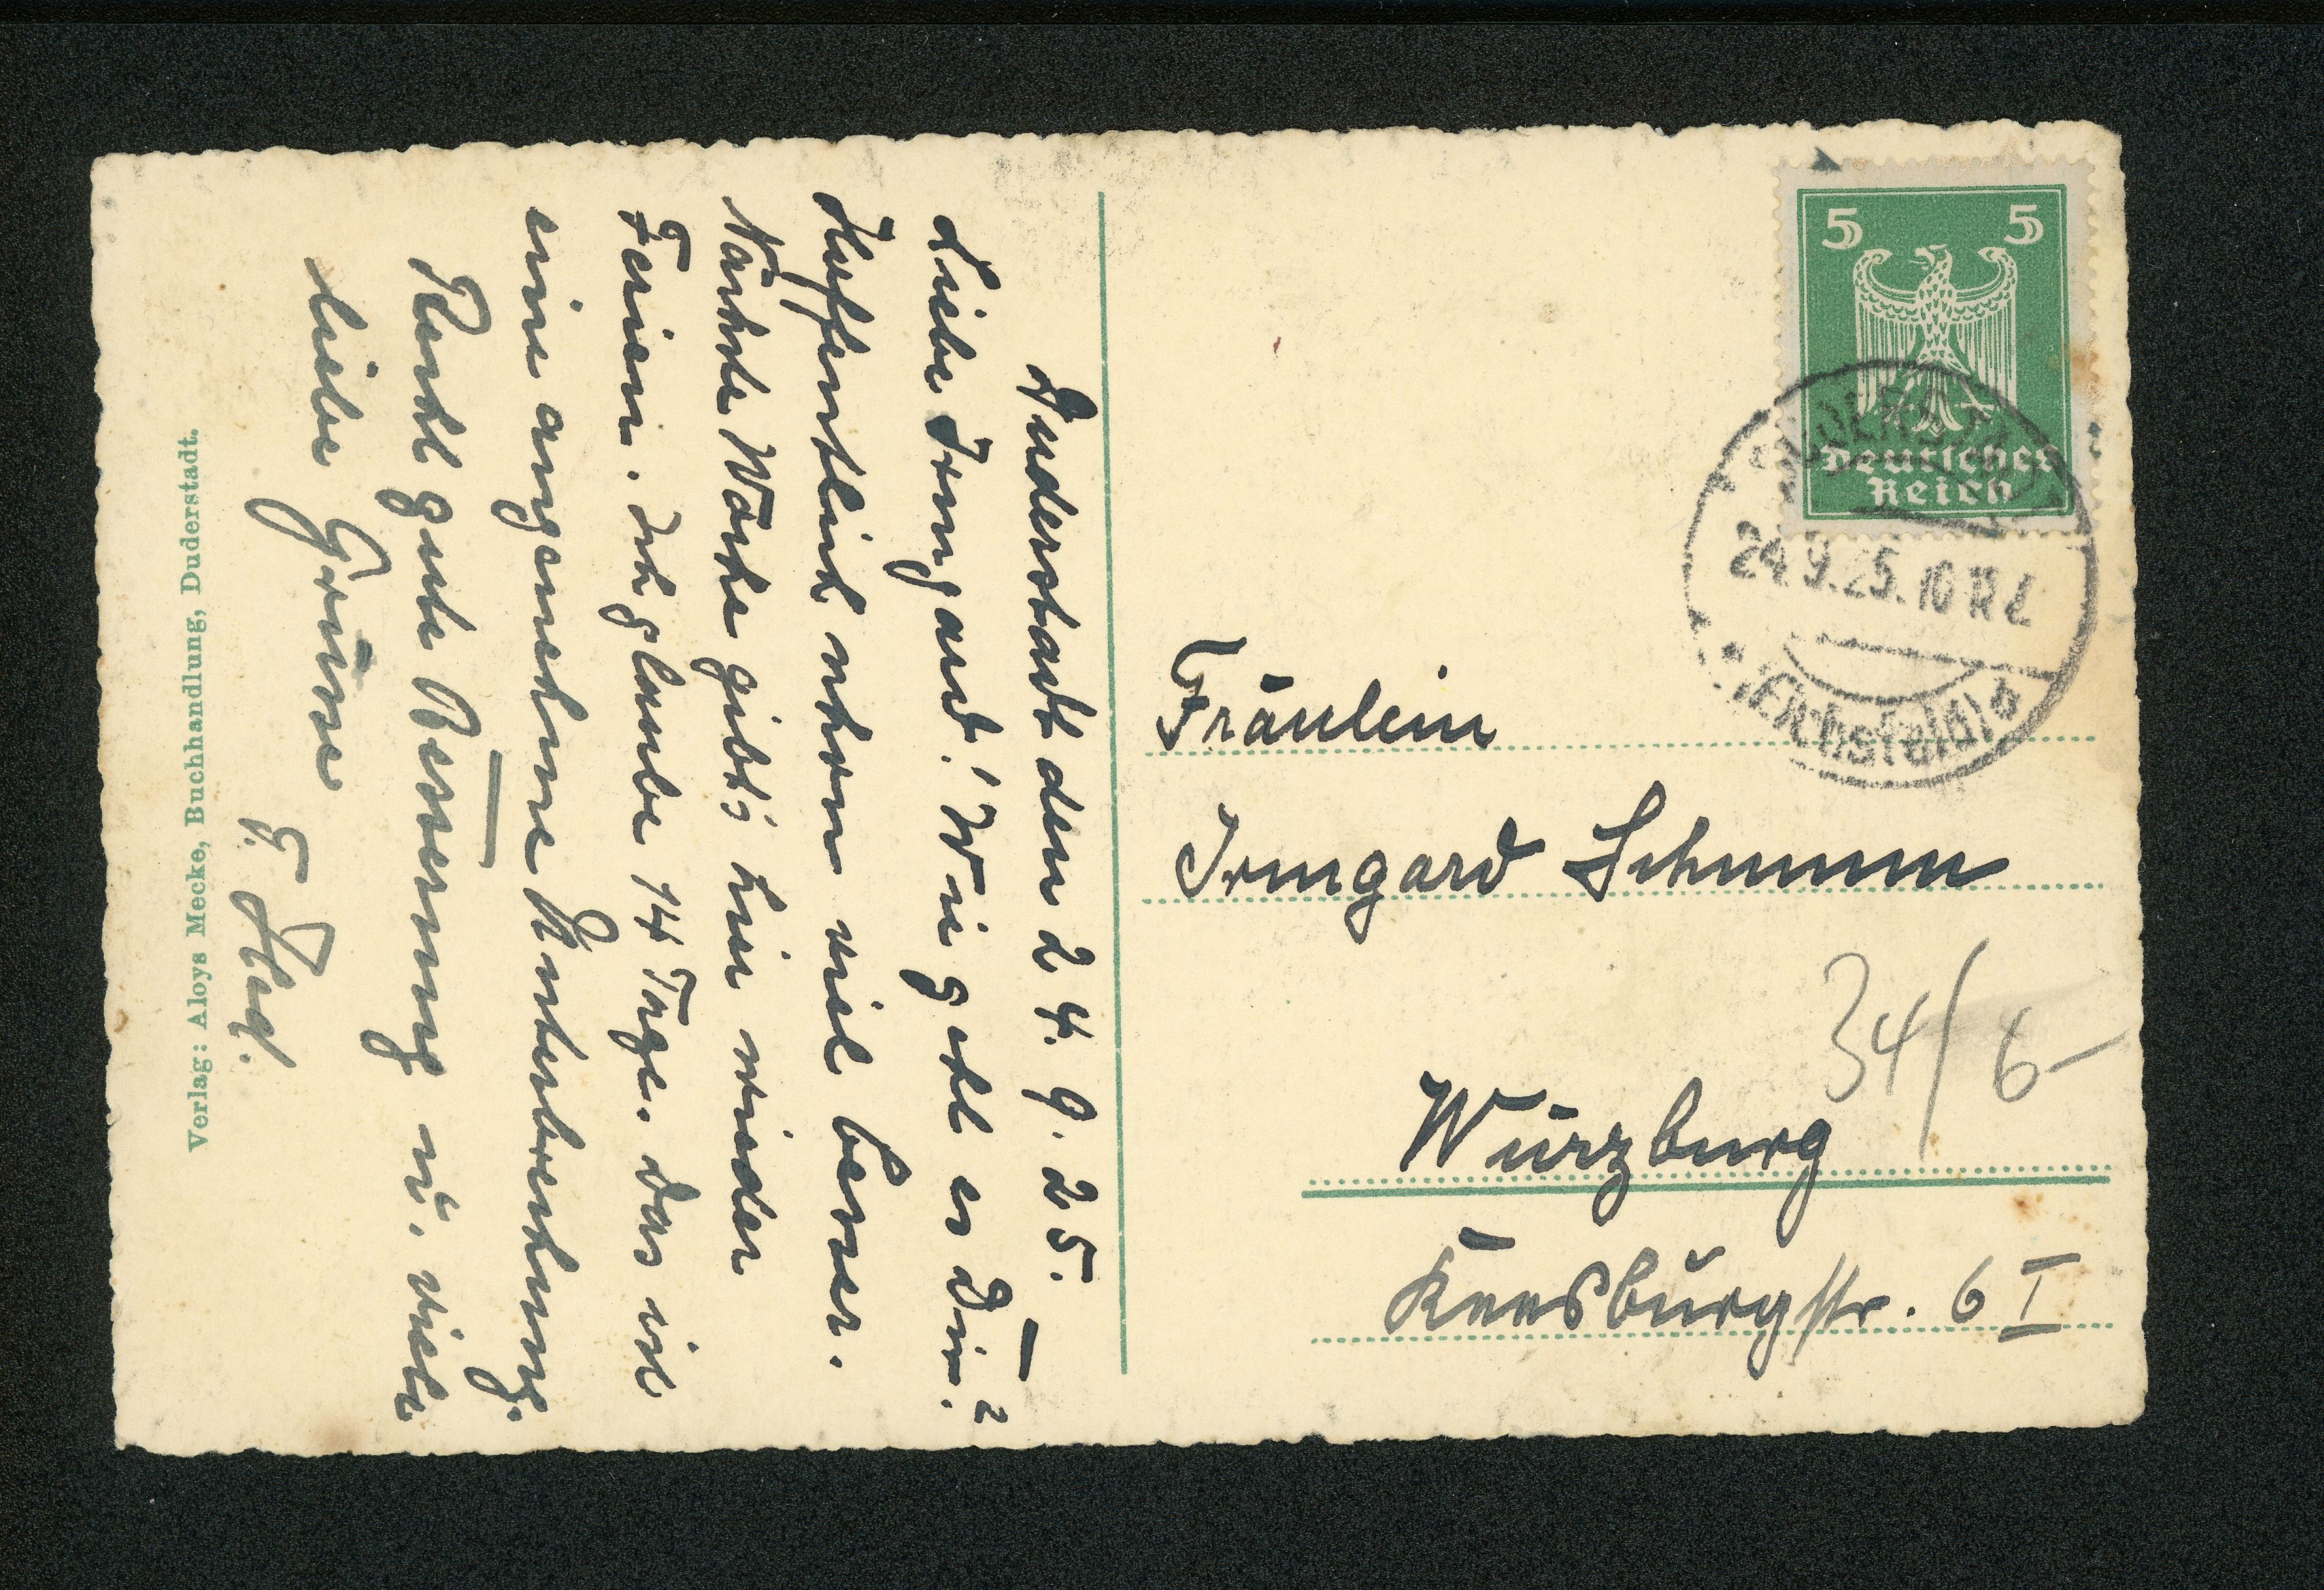 Duderstadt den 24. 9. 25.
Liebe Irmgard! Wie geht es Dir?
Hoffentlich schon viel besser.
Nächste Woche gibt's hier wieder
Ferien. Ich glaube 14 Tage. Das ist
eine angenehme Unterbrechung.
Recht gute Besserung u. viele
liebe Grüsse
F.
Verlag: Aloys Mecke, Buchhandlung, Duderstadt.
5 5
Deutsches
Reich
DUDERSTADT
24.9.25. 10
(Eichsfeld) b
Fräulein
Irmgard Schumm
34/6-
Würzburg
Keesburgstr. 6 I